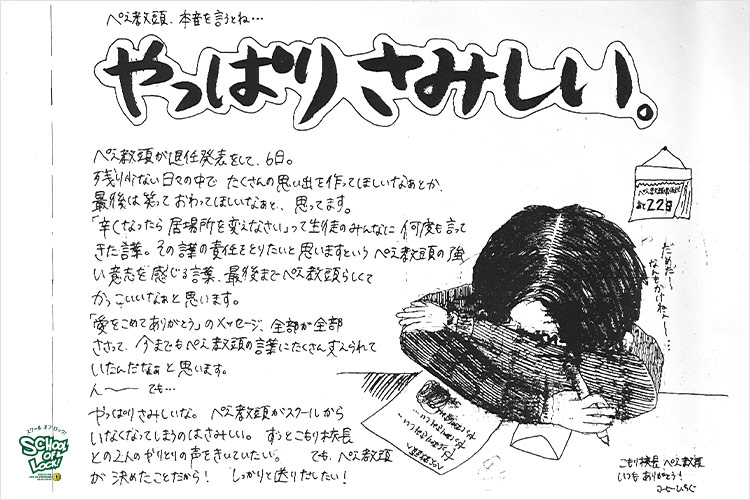 ぺえ教頭、本音を言うとね…
やっぱりさみしい。
ぺえ教頭が退任発表をして、6日。
残り少ない日々の中で たくさんの思い出を作ってほしいなぁとか、
最後は笑って おわってほしいなぁと、思ってます。
「辛くなったら 居場所を変えなさい」って生徒のみんなに 何度も言って
きた言葉。その言葉の責任をとりたいと思いますという ぺえ教頭の強
い意志を感じる言葉、最後までぺえ教頭らしくて
かっこいいなぁと思います。
「愛をこめてありがとう」のメッセージ、全部が全部
ささって、今までもぺえ教頭の言葉にたくさん支えられて
いたんだなぁ と思います。
ん〜 でも…
やっぱりさみしいな。 ぺえ教頭がスクールから
いなくなってしまうのはさみしい。 ずっとこもり校長
との2人のやりとりの声をきいていたい。 でも、ぺえ教頭
が 決めたことだから! しっかりと送りだしたい!
あと22日
だめだ〜
なんもかけねー…
こもり校長 ぺえ教頭
いつも ありがとう!
スクール オブ ロック!
SCHOOL OF LOCK!